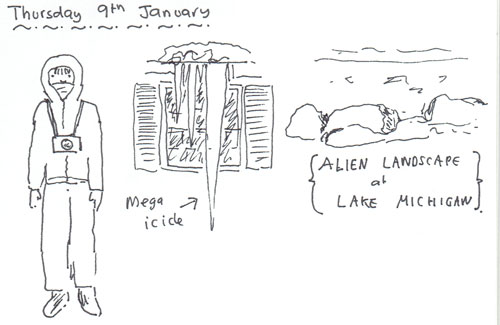 Thursday 9th January
Mega
icicle
ALIEN LANDSCAPE
at
LAKE MICHIGAN